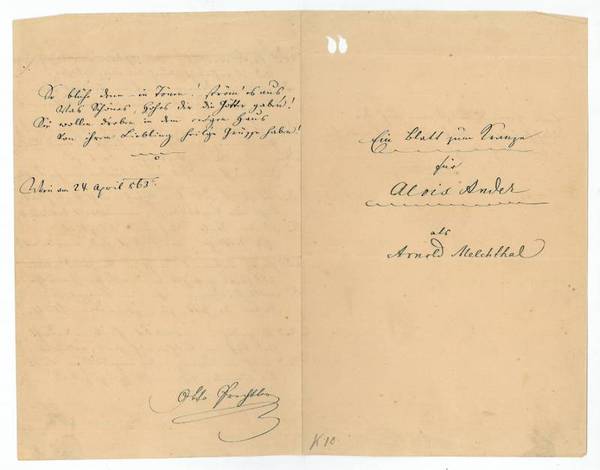 So blüh' denn in Tönen! ström' es aus,
Was Schönes, Hohes dir die Götter gaben!
Sie wollen droben in dem ew'gen Haus
Von ihrem Liebling heil'ge Grüße haben!
Wien am 24. April 863.
Otto Prechtler
Ein Blatt zum Kranze
für
Alois Ander
als
Arnold Melchthal
K10